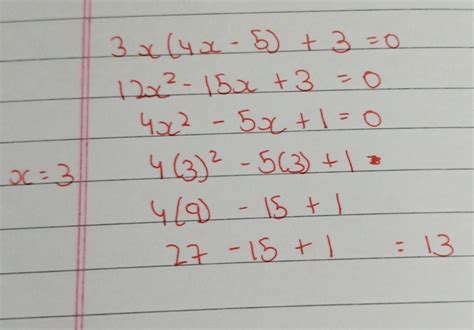 3x(4x - 5) + 3 = 0
12x² - 15x + 3 = 0
4x² - 5x + 1 = 0
x = 3 4(3)² - 5(3) + 1
4(9) - 15 + 1
27 - 15 + 1 = 13